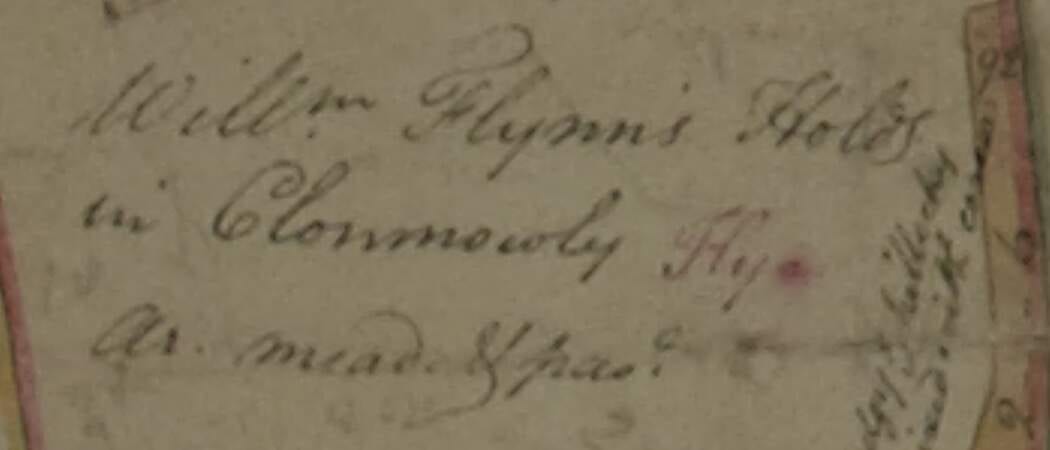 Will.m Flynn's Holdg
in Clonmowly Fly
Ar. mead. & pas.e
92
6
2